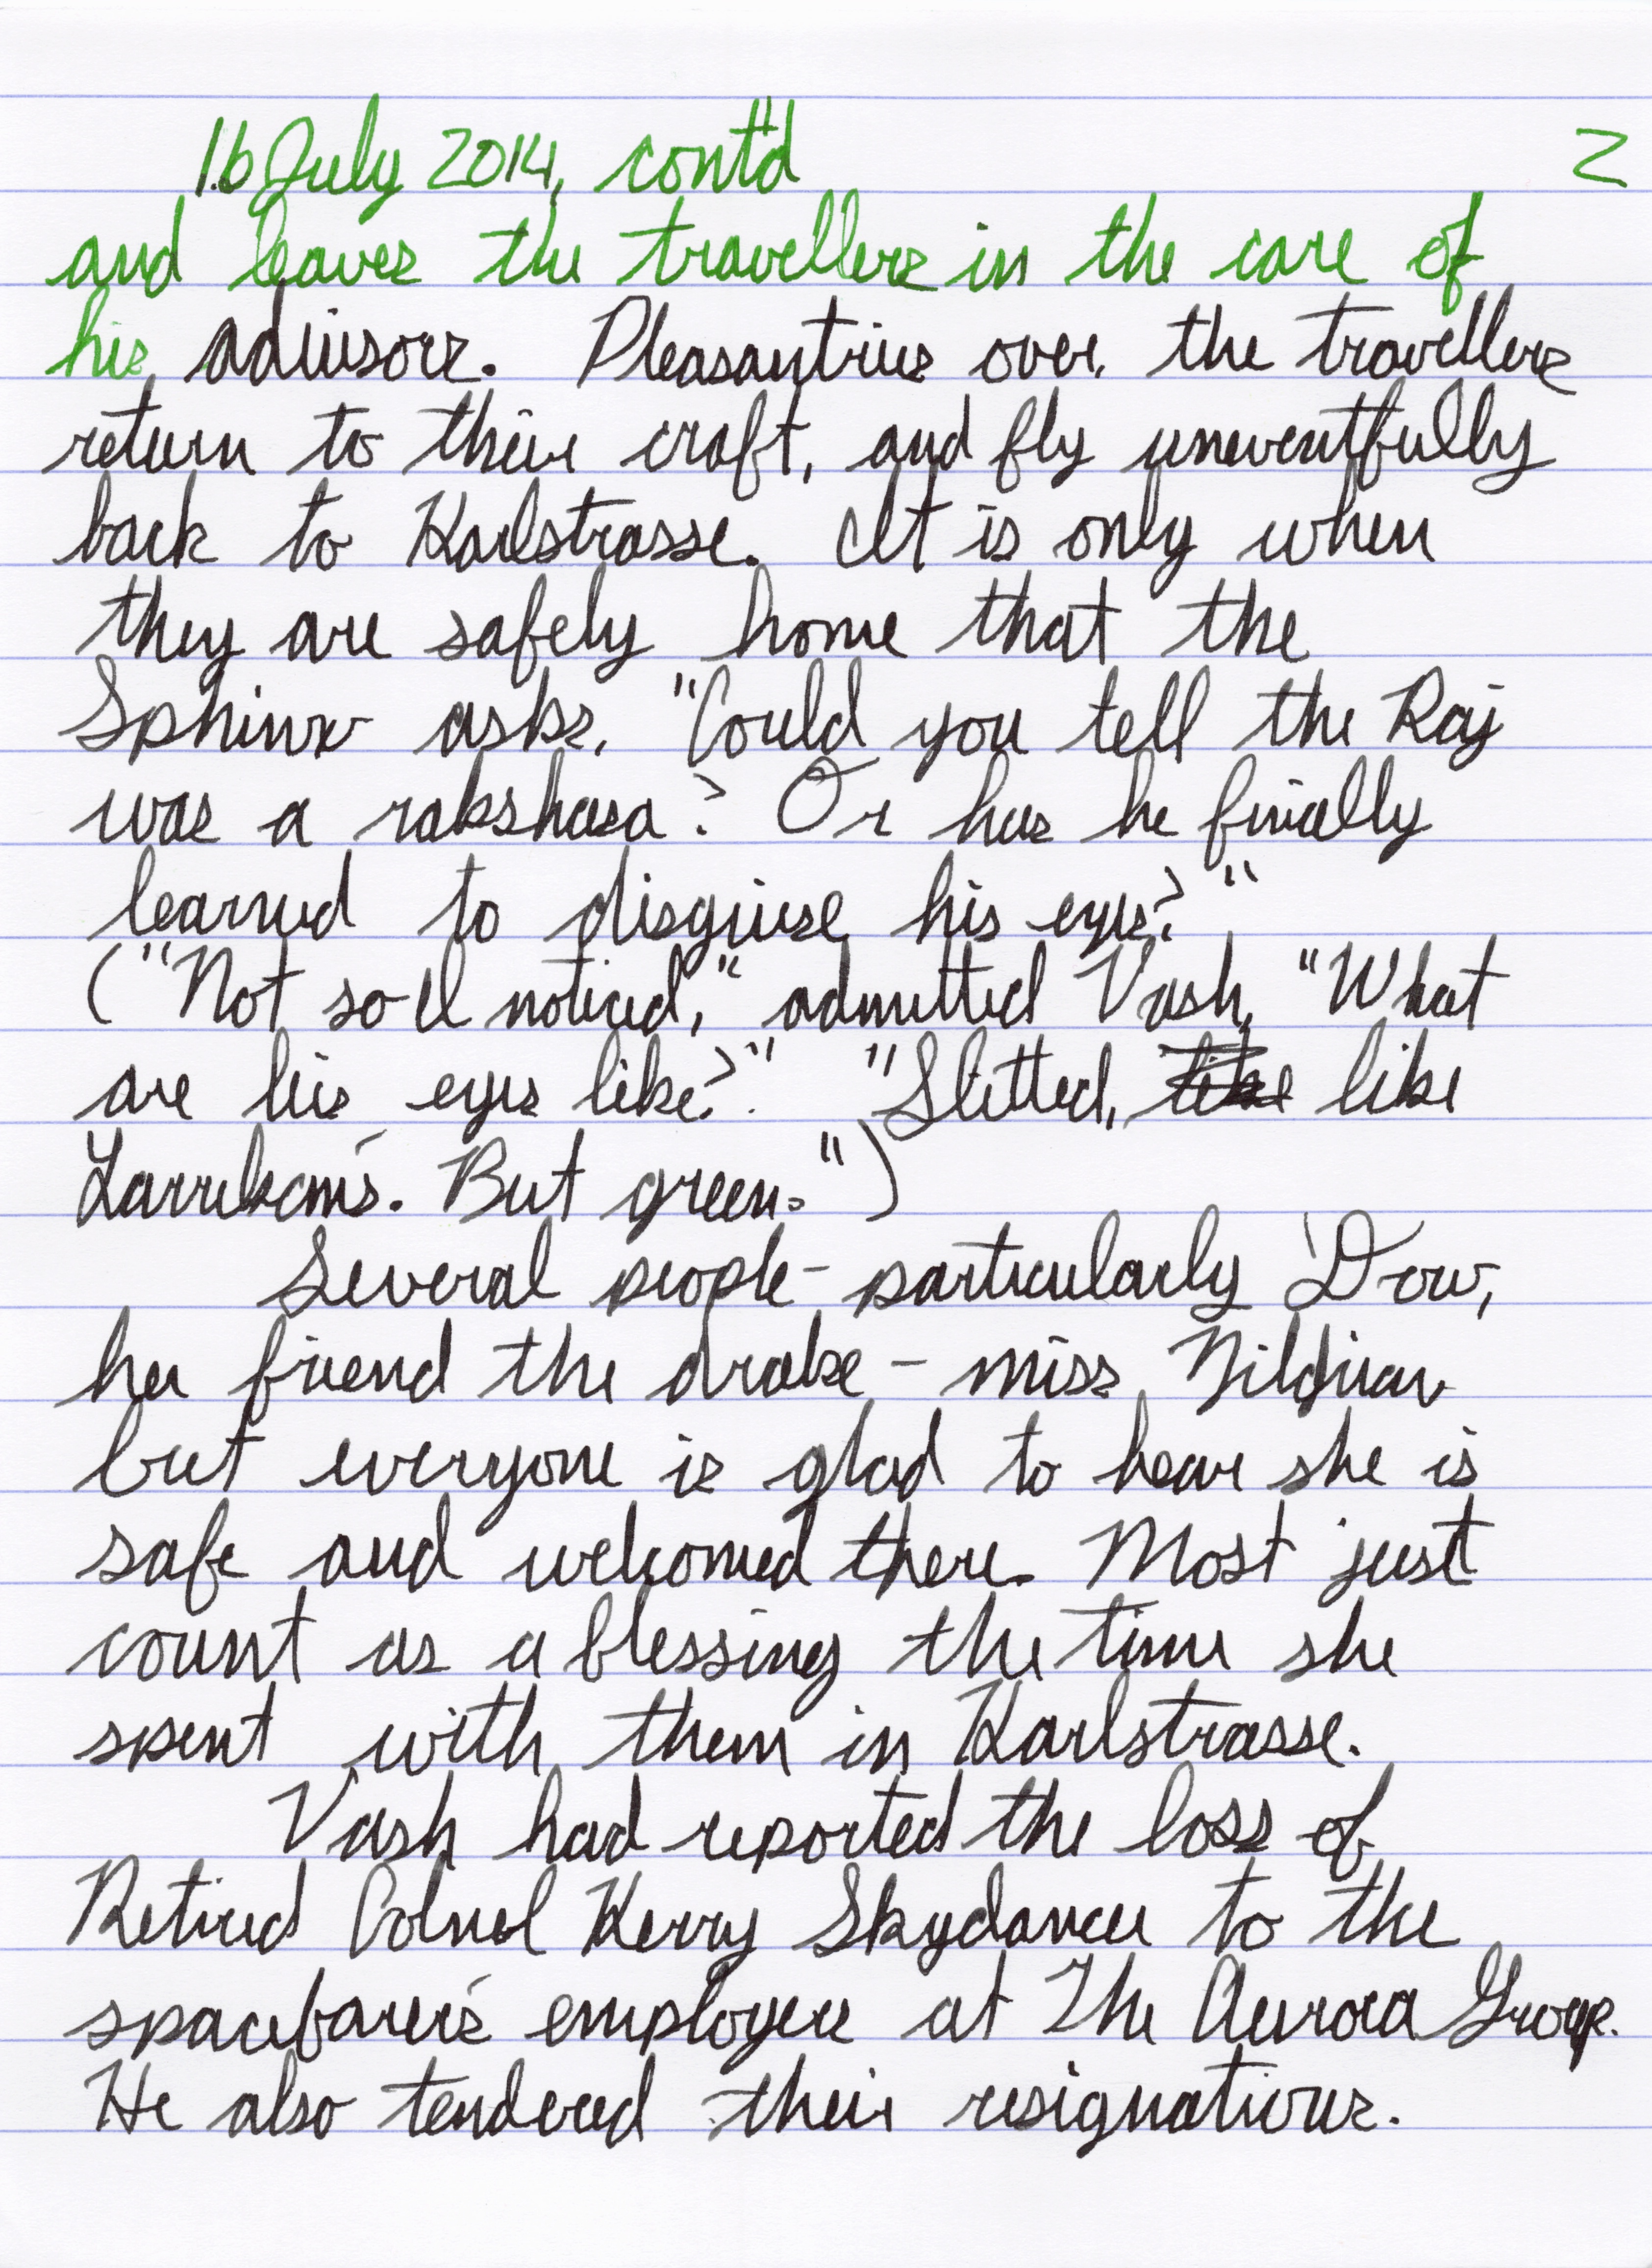 16 July 2014, cont'd 2
and leaves the travellers in the care of
his advisors. Pleasantries over, the travellers
return to their craft, and fly uneventfully
back to Karlstrasse. It is only when
they are safely home that the
Sphinx asks, "Could you tell the Raj
was a rakshasa? Or has he finally
learned to disguise his eyes?"
("Not so I'd noticed," admitted Vash, "What
are his eyes like?" "Slitted, like like
Larrikom's. But green.")
Several people - particularly 'Drow,
her friend the drake - miss
but everyone is glad to hear she is
safe and welcomed there. Most just
count as a blessing the time she
spent with them in Karlstrasse.
Vash had reported the loss of
Retired Colnel Kerry Skydancer to the
spacefarer's employers at The Aurora Group.
He also tendered their resignations.